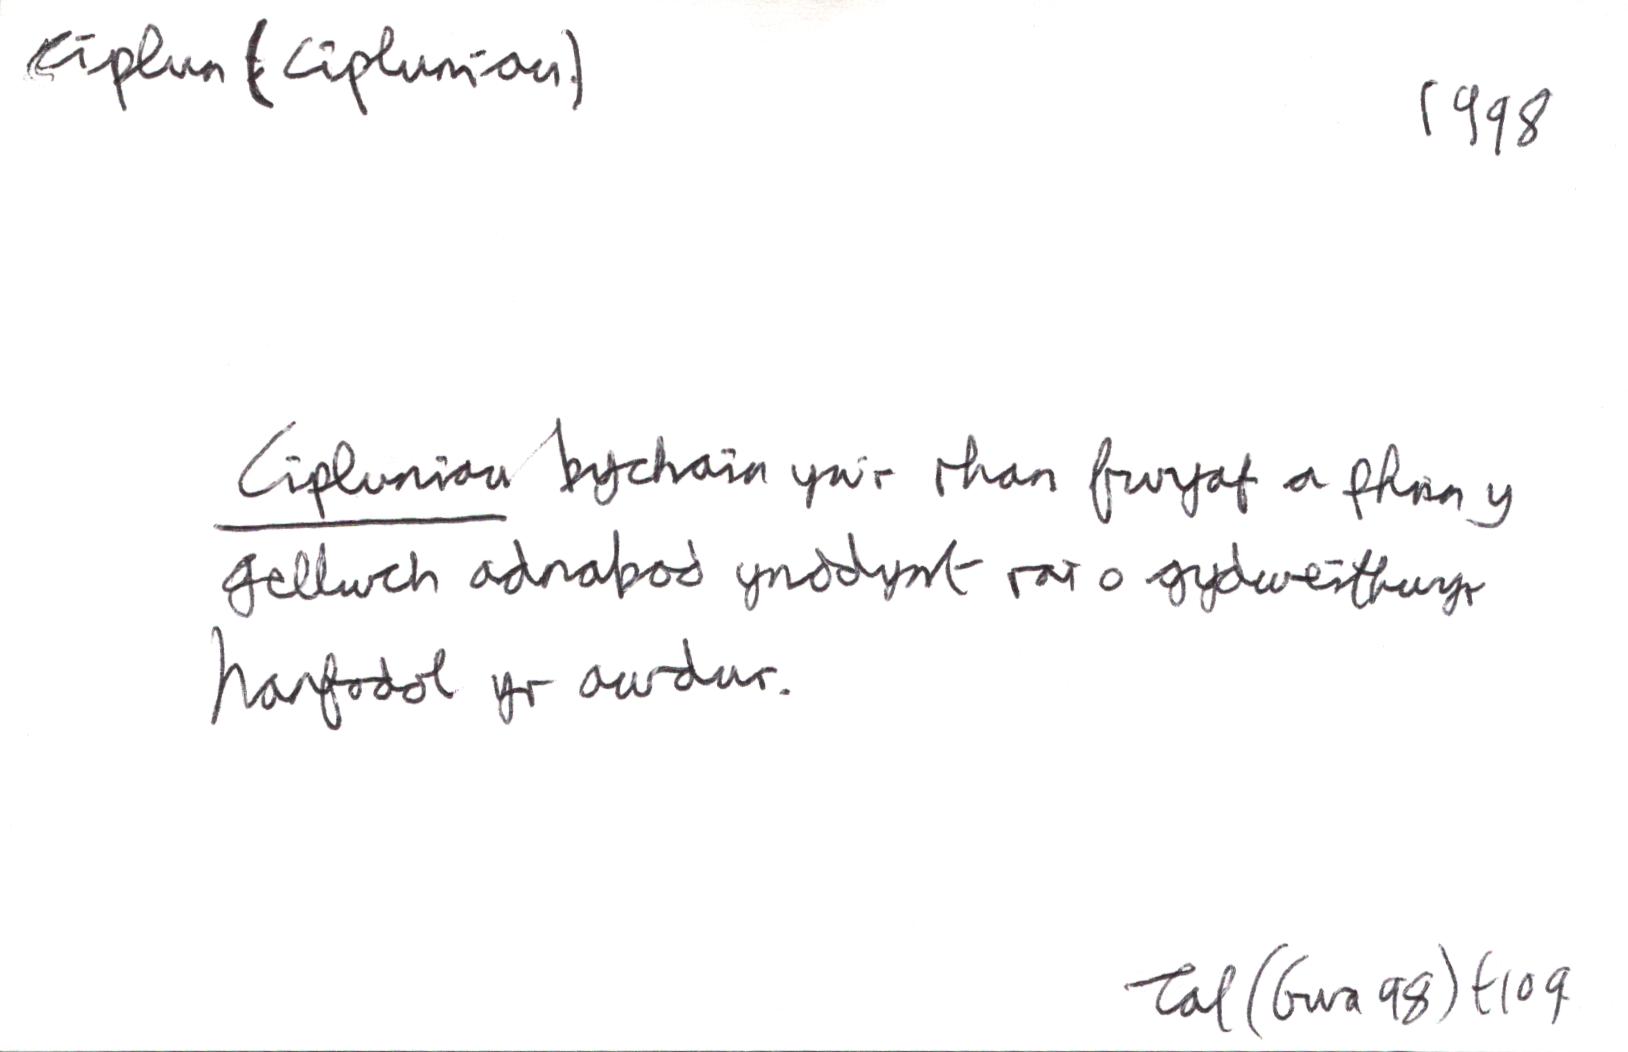 Ciplun (Cipluniau)
1998
Cipluniau bychain yw'r rhan fwyaf a phrin y
gellwch adnabod ynddynt rai o gydweithwyr
hanfodol yr awdur.
Tal (Gwa 98) t109